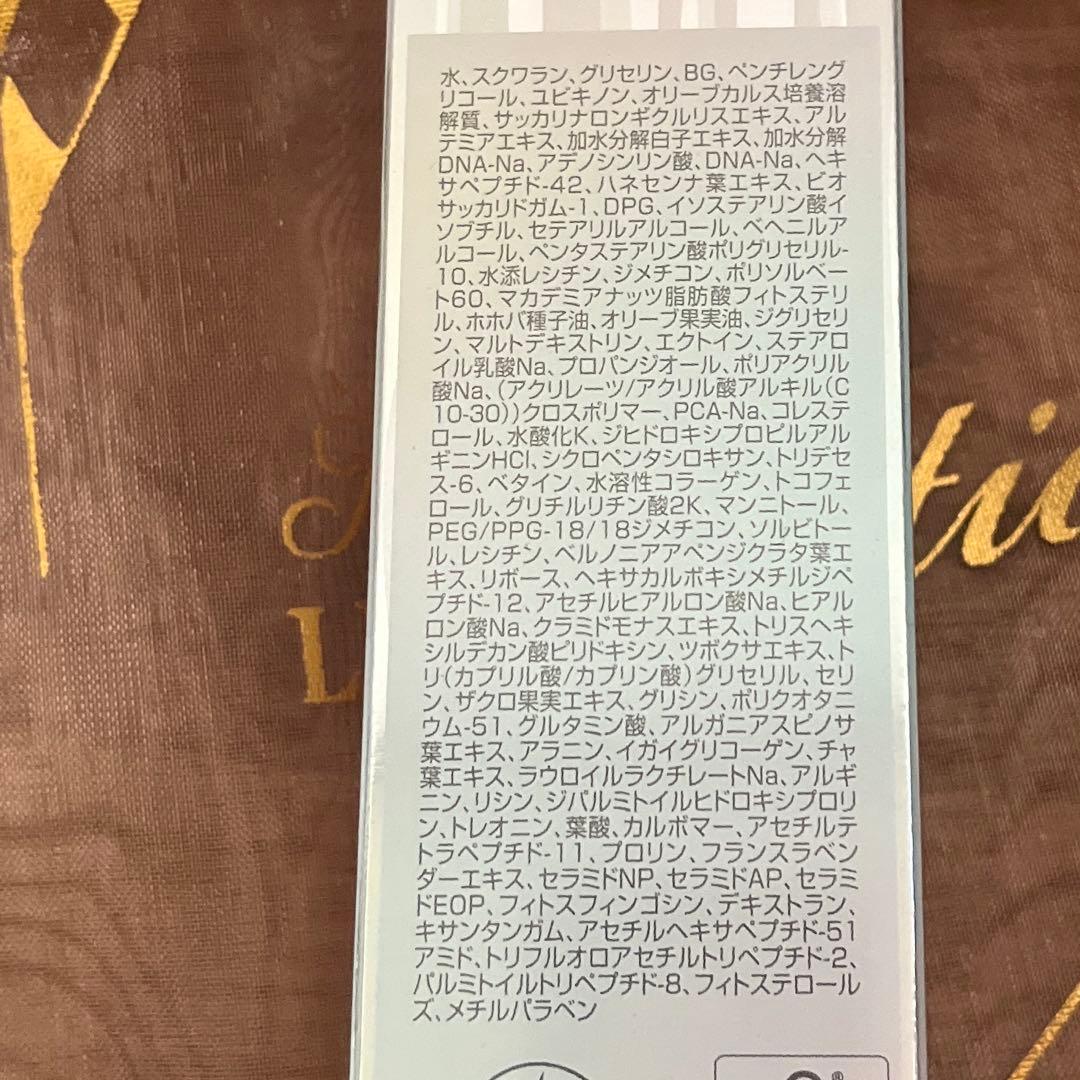 水、スクワラン、グリセリン、BG、ペンチレング
リコール、ユビキノン、オリーブカルス培養溶
解質、サッカリナロンギクルリスエキス、アル
テミアエキス、加水分解白子エキス、加水分解
DNA-Na、アデノシンリン酸、DNA-Na、ヘキ
サペプチド-42、ハネセンナ葉エキス、ビオ
サッカリドガム-1、DPG、イソステアリン酸イ
ソブチル、セテアリルアルコール、ベヘニルア
ルコール、ペンタステアリン酸ポリグリセリル-
10、水添レシチン、ジメチコン、ポリソルベー
ト60、マカデミアナッツ脂肪酸フィトステリ
ル、ホホバ種子油、オリーブ果実油、ジグリセリ
ン、マルトデキストリン、エクトイン、ステアロ
イル乳酸Na、プロパンジオール、ポリアクリル
酸Na、(アクリレーツ/アクリル酸アルキル(C
10-30))クロスポリマー、PCA-Na、コレステ
ロール、水酸化K、ジヒドロキシプロピルアル
ギニンHCl、シクロペンタシロキサン、トリデセ
ス-6、ベタイン、水溶性コラーゲン、トコフェ
ロール、グリチルリチン酸2K、マンニトール、
PEG/PPG-18/18ジメチコン、ソルビトー
ル、レシチン、ベルノニアアペンジクラタ葉エ
キス、リボース、ヘキサカルボキシメチルジペ
プチド-12、アセチルヒアルロン酸Na、ヒアル
ロン酸Na、クラミドモナスエキス、トリスヘキ
シルデカン酸ピリドキシン、ツボクサエキス、ト
リ(カプリル酸/カプリン酸)グリセリル、セリ
ン、ザクロ果実エキス、グリシン、ポリクオタニ
ウム-51、グルタミン酸、アルガニアスピノサ
葉エキス、アラニン、イガイグリコーゲン、チャ
葉エキス、ラウロイルラクチレートNa、アルギ
ニン、リシン、ジパルミトイルヒドロキシプロリ
ン、トレオニン、葉酸、カルボマー、アセチルテ
トラペプチド-11、プロリン、フランスラベン
ダーエキス、セラミドNP、セラミドAP、セラミ
ドEOP、フィトスフィンゴシン、デキストラン、
キサンタンガム、アセチルヘキサペプチド-51
アミド、トリフルオロアセチルトリペプチド-2、
パルミトイルトリペプチド-8、フィトステロール
ズ、メチルパラベン